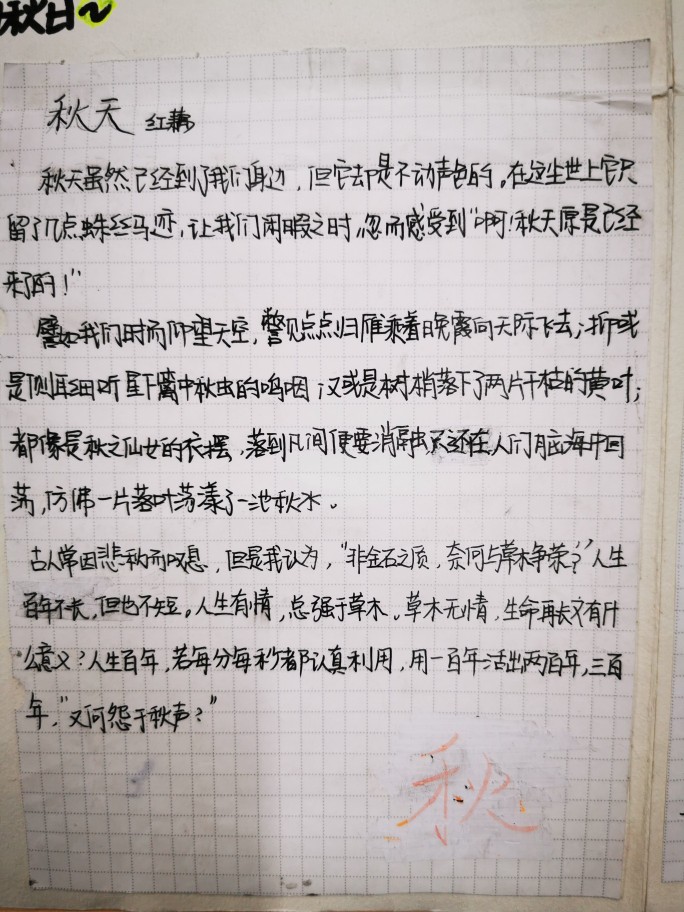 秋日~
秋天 红藕
秋天虽然已经到了我们身边，但它却是不动声色的。在这尘世上它只
留了几点蛛丝马迹，让我们闲暇之时，忽而感受到“啊！秋天原是已经
来了的！”
譬如我们时而仰望天空，瞥见点点归雁乘着晚霞向天际飞去；抑或
是侧耳细听墙下篱中秋虫的鸣咽；又或是树梢落下了两片干枯的黄叶；
都像是秋之仙女的衣摆，落到凡间便要消融只还在人们脑海中回
荡，仿佛一片落叶荡漾了一池秋水。
古人常因悲秋而叹息，但是我认为，“非金石之质，奈何与草木争荣？”人生
百年不长，但也不短。人生有情，总强于草木。草木无情，生命再长又有什
么意义？人生百年，若每分每秒都认真利用，用一百年活出两百年，三百
年，“又何怨于秋声？”
秋